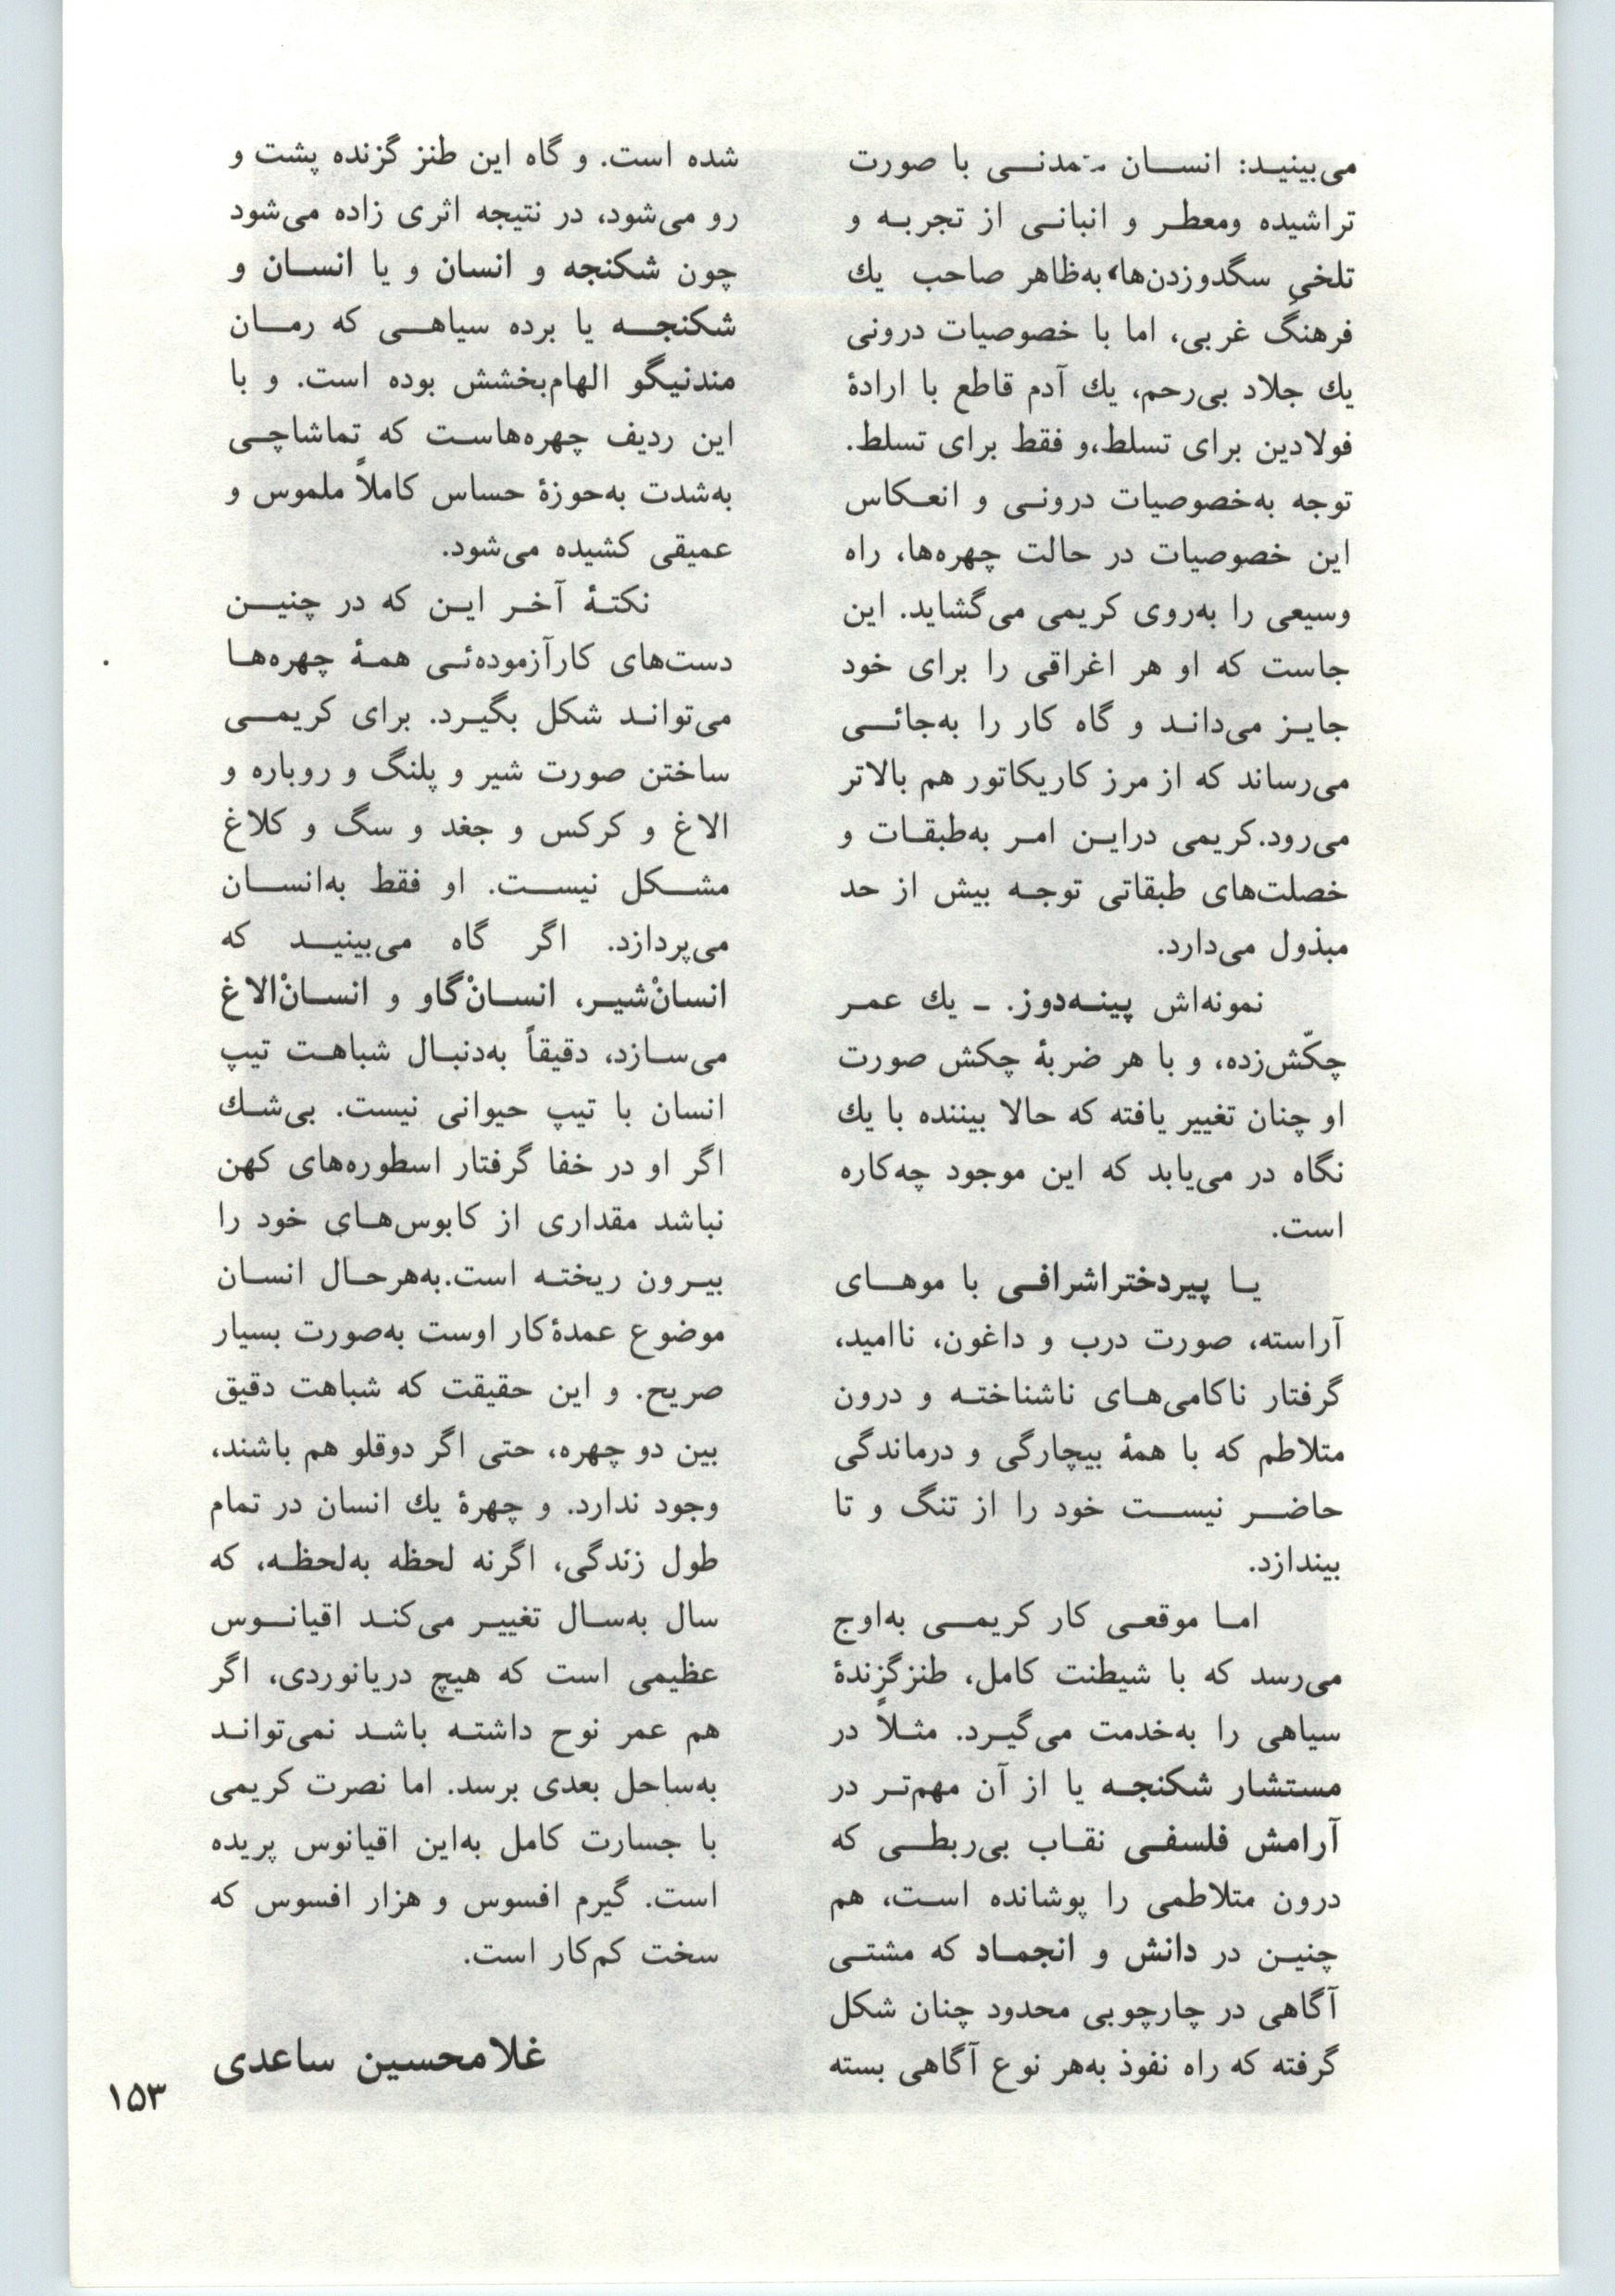 می‌بینید: انسان متمدنی با صورت
تراشیده ومعطر و انبانی از تجربه و
تلخیِ سگدوزدن‌ها، به‌ظاهر صاحب یك
فرهنگ غربی، اما با خصوصیات درونی
یك جلاد بی‌رحم، یك آدم قاطع با ارادهٔ
فولادین برای تسلط،و فقط برای تسلط.
توجه به‌خصوصیات درونی و انعکاس
این خصوصیات در حالت چهره‌ها، راه
وسیعی را به‌روی کریمی می‌گشاید. این
جاست که او هر اغراقی را برای خود
جایز می‌داند و گاه کار را به‌جائی
می‌رساند که از مرز کاریکاتور هم بالاتر
می‌رود.کریمی دراین امر به‌طبقات و
خصلت‌های طبقاتی توجه بیش از حد
مبذول می‌دارد.
نمونه‌اش پینه‌دوز. ـ یك عمر
چکّش‌زده، و با هر ضربهٔ چکش صورت
او چنان تغییر یافته که حالا بیننده با یك
نگاه در می‌یابد که این موجود چه‌کاره
است.
یا پیردختراشرافی با موهای
آراسته، صورت درب و داغون، ناامید،
گرفتار ناکامی‌های ناشناخته و درون
متلاطم که با همهٔ بیچارگی و درماندگی
حاضر نیست خود را از تنگ و تا
بیندازد.
اما موقعی کار کریمی به‌اوج
می‌رسد که با شیطنت کامل، طنزگزندهٔ
سیاهی را به‌خدمت می‌گیرد. مثلاً در
مستشار شکنجه یا از آن مهم‌تر در
آرامش فلسفی نقاب بی‌ربطی که
درون متلاطمی را پوشانده است، هم
چنین در دانش و انجماد که مشتی
آگاهی در چارچوبی محدود چنان شکل
گرفته که راه نفوذ به‌هر نوع آگاهی بسته
شده است. و گاه این طنز گزنده پشت و
رو می‌شود، در نتیجه اثری زاده می‌شود
چون شکنجه و انسان و یا انسان و
شکنجه یا برده سیاهی که رمان
مندنیگو الهام‌بخشش بوده است. و با
این ردیف چهره‌هاست که تماشاچی
به‌شدت به‌حوزهٔ حساس کاملاً ملموس و
عمیقی کشیده می‌شود.
نکتهٔ آخر این که در چنین
دست‌های کارآزموده‌ئی همهٔ چهره‌ها
می‌تواند شکل بگیرد. برای کریمی
ساختن صورت شیر و پلنگ و روباره و
الاغ و کرکس و جغد و سگ و کلاغ
مشکل نیست. او فقط به‌انسان
می‌پردازد. اگر گاه می‌بینید که
انسانْشیر، انسانْگاو و انسانْالاغ
می‌سازد، دقیقاً به‌دنبال شباهت تیپ
انسان با تیپ حیوانی نیست. بی‌شك
اگر او در خفا گرفتار اسطوره‌های کهن
نباشد مقداری از کابوس‌های خود را
بیرون ریخته است.به‌هرحال انسان
موضوع عمدهٔ‌کار اوست به‌صورت بسیار
صریح. و این حقیقت که شباهت دقیق
بین دو چهره، حتی اگر دوقلو هم باشند،
وجود ندارد. و چهرهٔ یك انسان در تمام
طول زندگی، اگرنه لحظه به‌لحظه، که
سال به‌سال تغییر می‌کند اقیانوس
عظیمی است که هیچ دریانوردی، اگر
هم عمر نوح داشته باشد نمی‌تواند
به‌ساحل بعدی برسد. اما نصرت کریمی
با جسارت کامل به‌این اقیانوس پریده
است. گیرم افسوس و هزار افسوس که
سخت کم‌کار است.
غلامحسین ساعدی
۱۵۳